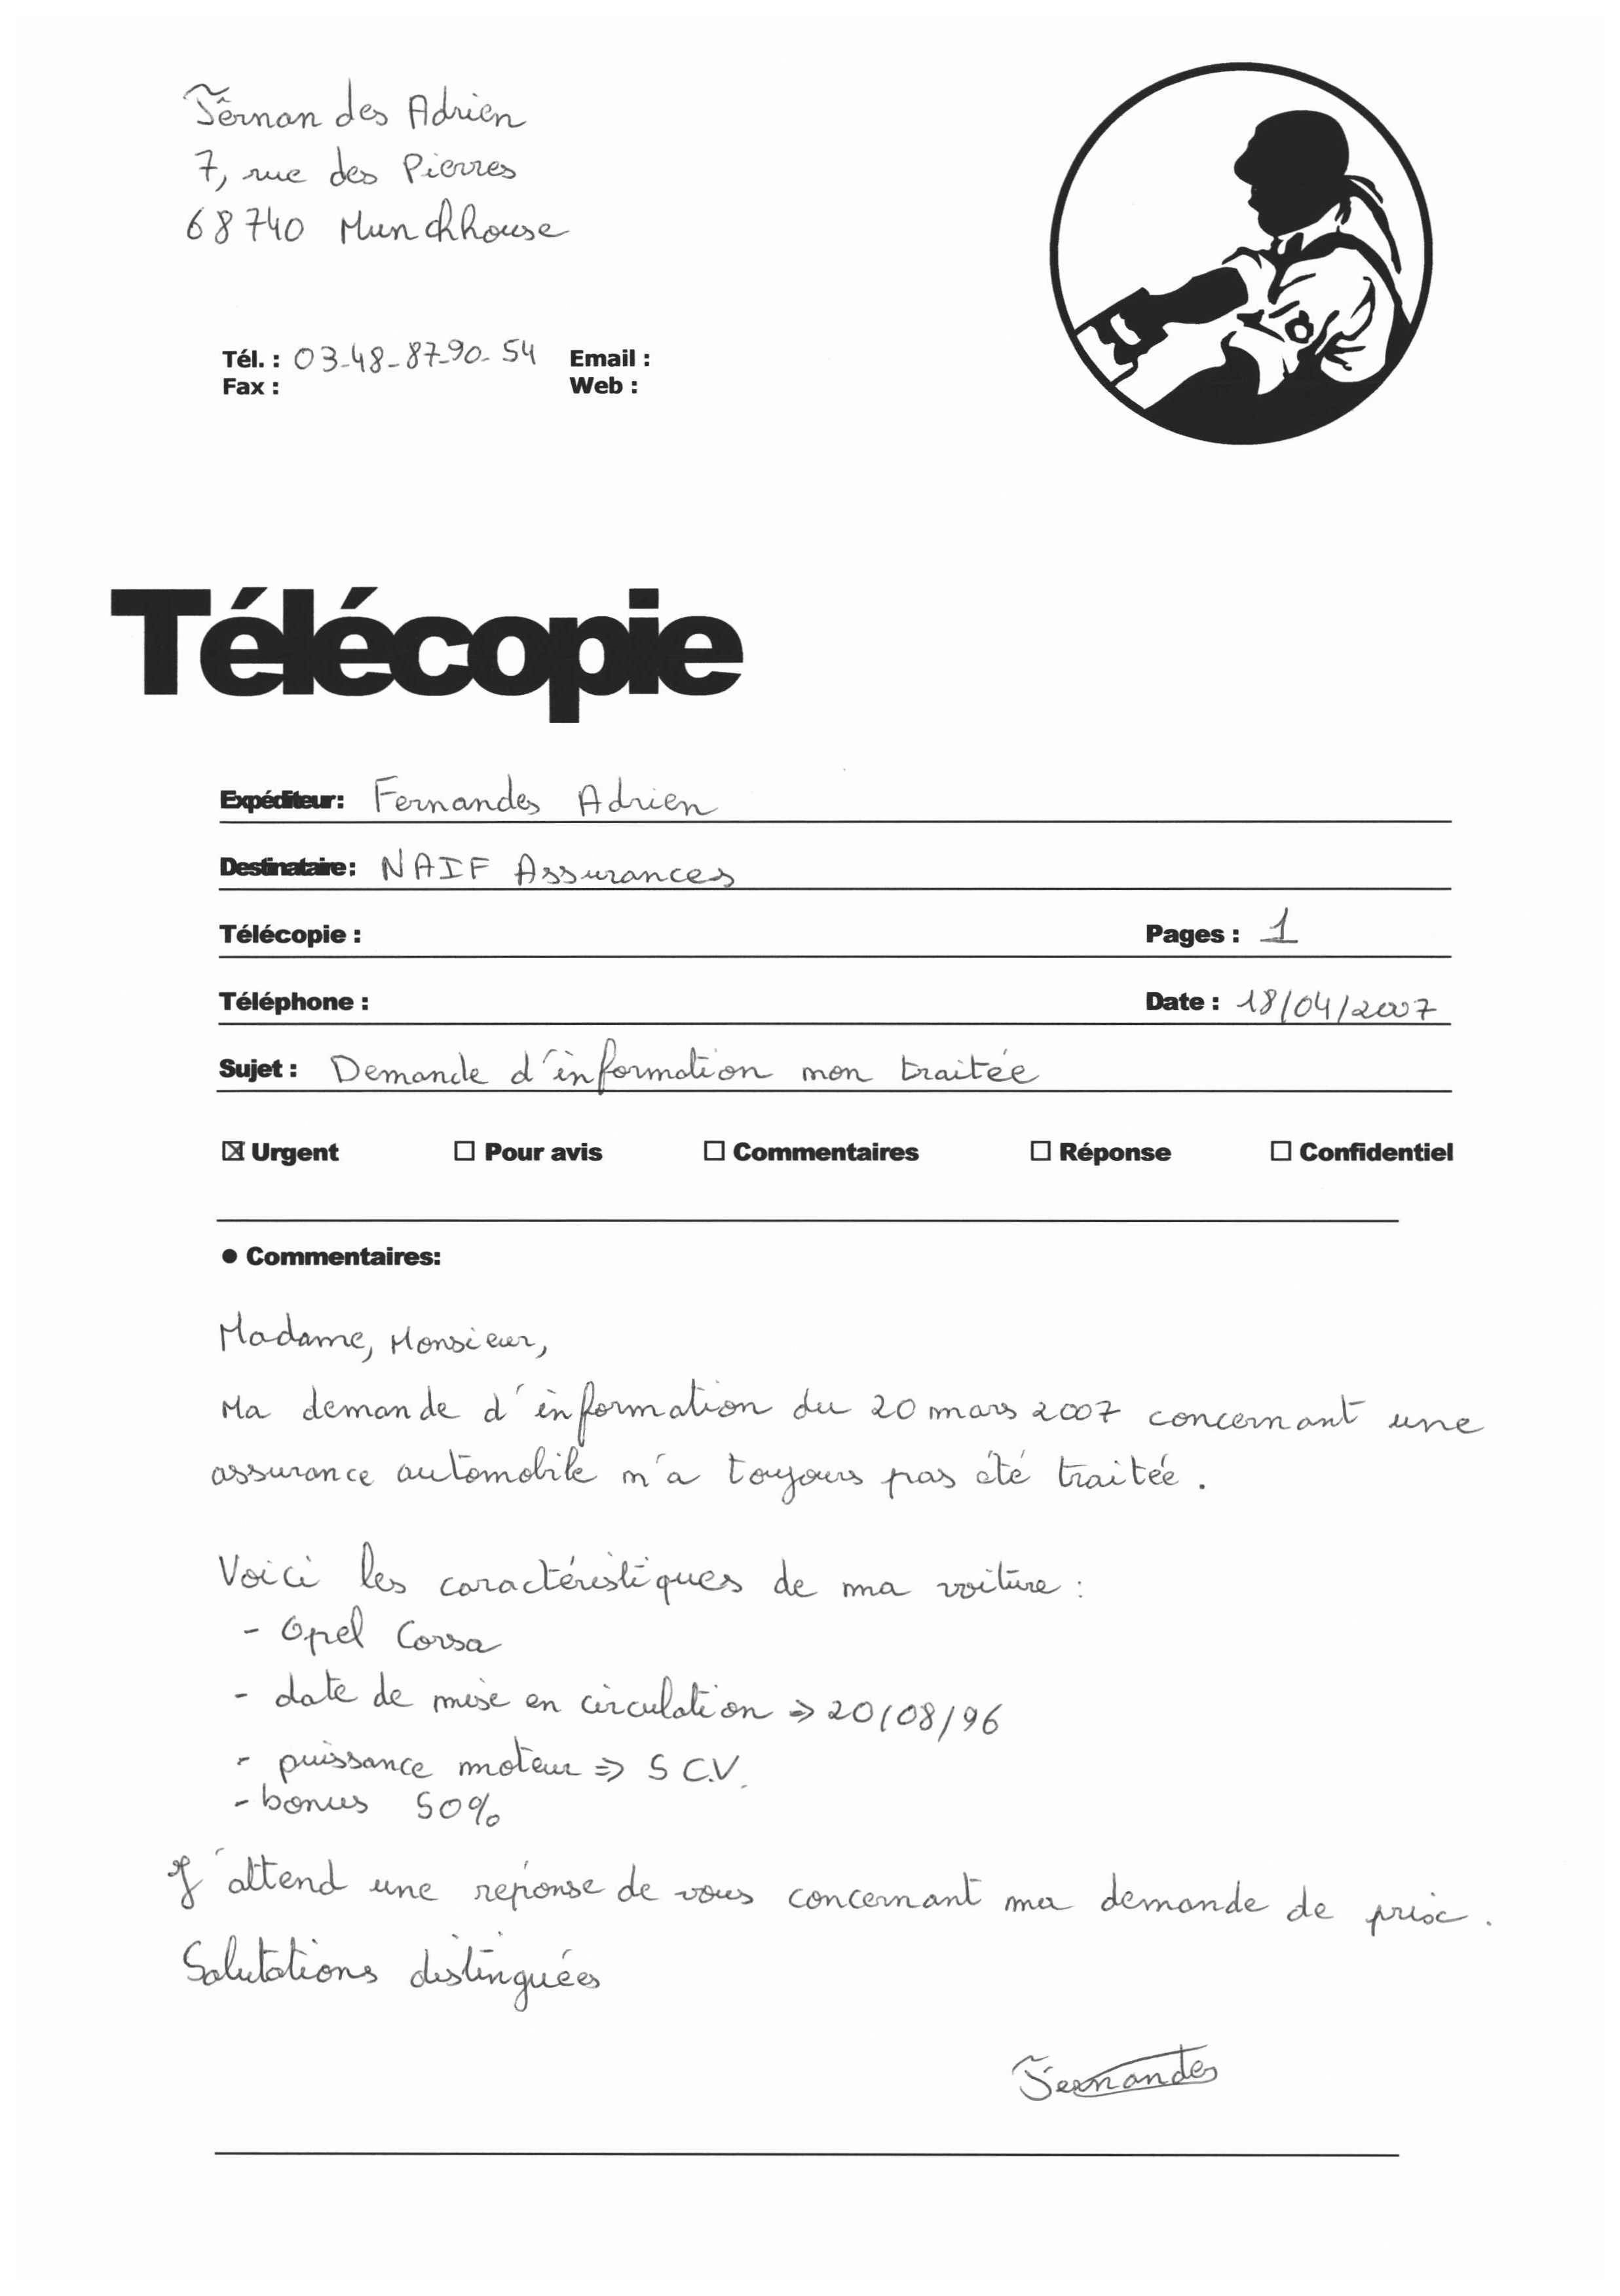 Fernandes Adrien
7, rue des Pierres
68740 Munchhouse
Tél. : 03-48-87-90-54 Email :
Fax : Web :
Télécopie
Expéditeur: Fernandes Adrien
Destinataire: NAIF Assurances
Télécopie : Pages : 1
Téléphone : Date : 18/04/2007
Sujet : Demande d'information non traitée
☒ Urgent ☐ Pour avis ☐ Commentaires ☐ Réponse ☐ Confidentiel
● Commentaires:
Madame, Monsieur,
Ma demande d'information du 20 mars 2007 concernant une
assurance automobile n'a toujours pas été traitée.
Voici les caractéristiques de ma voiture :
- Opel Corsa
- date de mise en circulation => 20/08/96
- puissance moteur => 5 C.V.
- bonus 50%
J'attend une réponse de vous concernant ma demande de prise.
Salutations distinguées
Fernandes